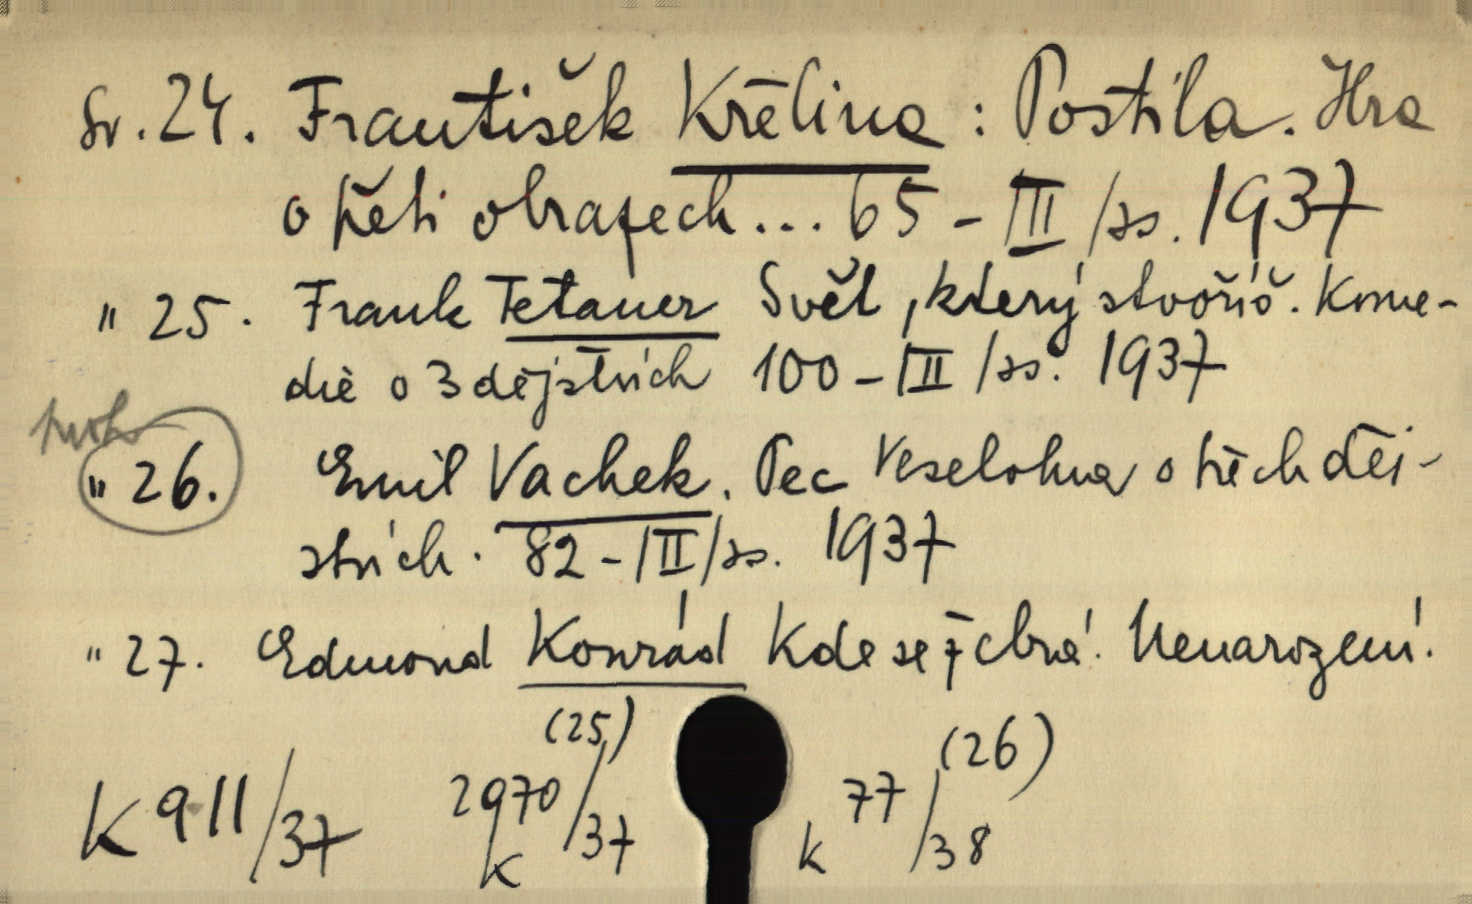 Sv. 24. František Křelina: Postila. Hra
o pěti obrazech... 65 - III /ss. 1937
" 25. Frank Tetauer Svět, který stvoříš. Kome-
die o 3 dějstvích 100 - III /ss. 1937
" 26. Emil Vachek. Pec Veselohra o třech děj-
stvích. 82 - III /ss. 1937
" 27. Edmond Konrád Kde se žebrá. Nenarození.
(25) (26)
K 911/37 2970/37 K k 77/38